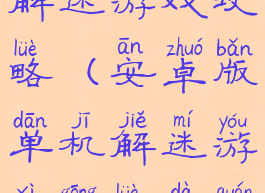 解迷游戏攻
lüè ān zhuó bǎn
略（安卓版
dān jī jiě mí yóu
单机解迷游
xì gōng lüè dà quán